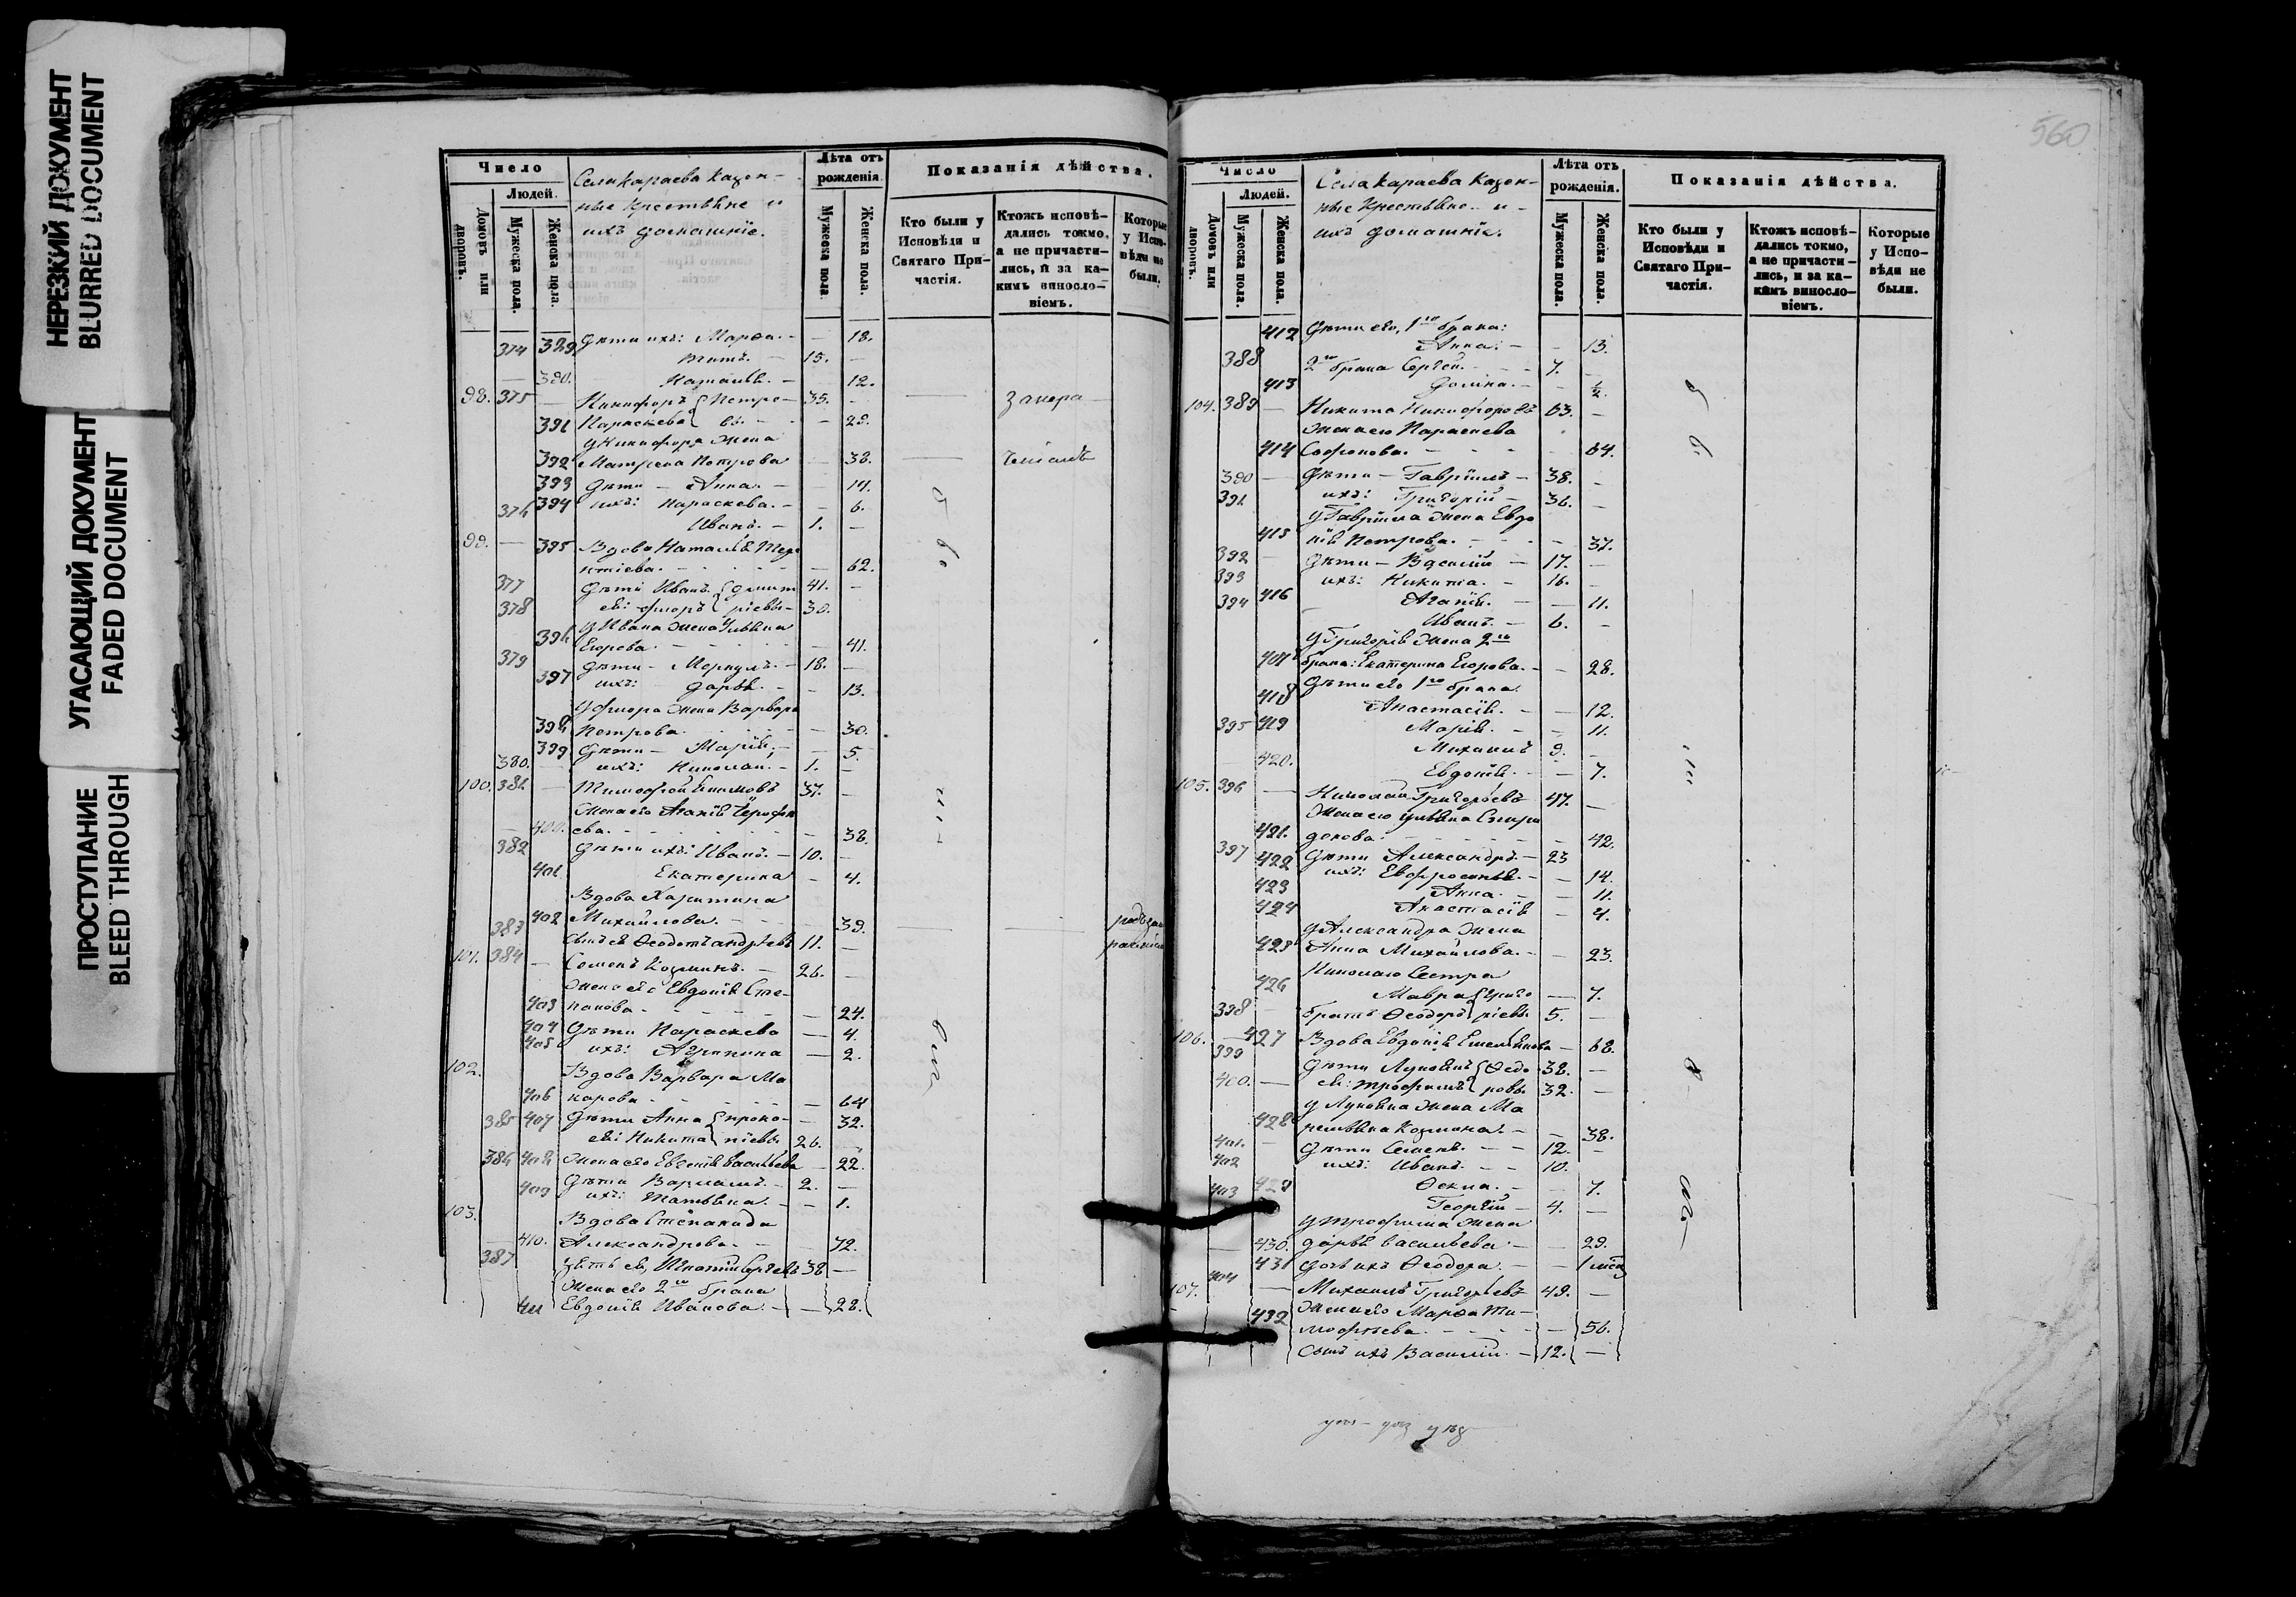 НЕРЕЗКИЙ ДОКУМЕНТ
BLURRED DOCUMENT
УГАСАЮЩИЙ ДОКУМЕНТ
FADED DOCUMENT
ПРОСТУПАНИЕ
BLEED THROUGH
Число
Людей.
Домовъ или дворовъ.
Мужеска пола.
Женска пола.
Села Караева казен-
ные крестьяне и
ихъ домашніе.
Лѣта отъ рожденія.
Мужеска пола.
Женска пола.
Показанія дѣйства.
Кто были у Исповѣди и Святаго Причастія.
Ктожъ исповѣдались токмо, а не причастились, и за какимъ винословіемъ.
Которые у Исповѣди не были.
389 Дѣти ихъ: Марѳа. — — 18.
374 Титъ. — 15. —
390. Наталія. — 12.
98. 375 — Никифоръ Петро- 35. —
391 Параскева вы. — — 29.
у Никифора жена
392 Матрена Петрова — 38.
393 Дѣти — Анна. — — 14.
394 ихъ: Параскева. — — 6.
376 Иванъ. — 1. —
99. — 395 Вдова Наталія
— 62.
377 Дѣти Иванъ Дмит 41. —
378 ея: Флоръ ріевы — 30.
у Ивана жена Ульяна
396 Егорова. — 41.
379 Дѣти — Меркулъ. — 18. —
397 ихъ: Дарья. — — 13.
у Флора жена Варвара
398 Петрова. — 30.
399 Дѣти — Марія, — 5.
380. ихъ: Николай. — 1. —
100. 381 — Тимофей 37. —
Жена его Агафія
400. ева. — 38.
382 Дѣти ихъ: Иванъ. — 10. —
401 Екатерина — 4.
Вдова Харитина
402 Михайлова. — 39.
383 Сынъ ея Ѳеодотъ Андреевъ 11. —
101. 384 — Семенъ Козминъ. — 26. —
Жена его Евдокія Сте-
403 панова — 24.
404 Дѣти Параскева — 4.
405 ихъ: Агрипина — 2.
102. Вдова Варвара Ма
406 карова — 64
407 Дѣти Анна Проко- — 32.
385 ея: Никита піевы 26. —
408 Жена его Евгенія Васильева — 22.
386 Дѣти Варлаамъ. — 2. —
409 ихъ: Татьяна. — — 1.
103. Вдова Степанида
410. Александрова. — 72.
387 38 —
Жена его 2го брака
411 Евдокія Иванова. — — 28.
560
Число
Людей.
Домовъ или дворовъ.
Мужеска пола.
Женска пола.
Села Караева казен-
ные крестьяне и
ихъ домашніе.
Лѣта отъ рожденія.
Мужеска пола.
Женска пола.
Показанія дѣйства.
Кто были у Исповѣди и Святаго Причастія.
Ктожъ исповѣдались токмо, а не причастились, и за какимъ винословіемъ.
Которые у Исповѣди не были.
412 Дѣти его, 1го брака:
Анна. — — 13.
388 2го брака Сергѣй. — 7. —
413 Домна. — — ½.
104. 389 — Никита Никифоровъ 63. —
Жена его Параскева
414 Софронова. — 64.
390 — Дѣти — Гавріилъ — 38. —
391 ихъ: Григорій — 36. —
у Гавріила жена Евдо
415 кія Петрова. — 37.
392 — Дѣти — Василій — 17. —
393 ихъ: Никита. — 16. —
416 Агафія. — — 11.
394 Иванъ. — 6. —
у Григорія жена 2го
417 брака: Екатерина Егорова. — — 28.
Дѣти его 1го брака
418 Анастасія. — — 12.
419 Марія. — — 11.
395 Михаилъ 9. —
420. Евдокія. — — 7.
105. 396 — Николай Григорьевъ 47. —
Жена его Ульяна Спири
421. донова. — 42.
397 Дѣти Александръ. — 23
422 ихъ: Евфросинья. — — 14.
423 Анна. — — 11.
424 Анастасія — 4.
у Александра жена
425 Анна Михайлова. — — 23.
Николаю сестра
426 Мавра Григо — 7.
398 братъ Ѳеодоръ рьевы 5. —
106. — 427 Вдова Евдокія Емельянова — 68.
399 Дѣти Лукьянъ Ѳедо 38. —
400. — ея: Трофимъ ровы 32. —
у Лукьяна жена Ма
428 ремьяна Козмина. — — 38.
401. — Дѣти Семенъ. — 12. —
402 ихъ: Иванъ. — — 10.
429 Ѳекла. — — 7.
403 Георгій — 4. —
у Трофима жена
430. Дарья Васильева — — 29.
431 дочь ихъ Ѳеодора. — — 1 мѣс
107. 404 — Михаилъ Григорьевъ 49. —
Жена его Марѳа Ти-
432 мофеева. — 56.
Сынъ ихъ Василій. — 12. —